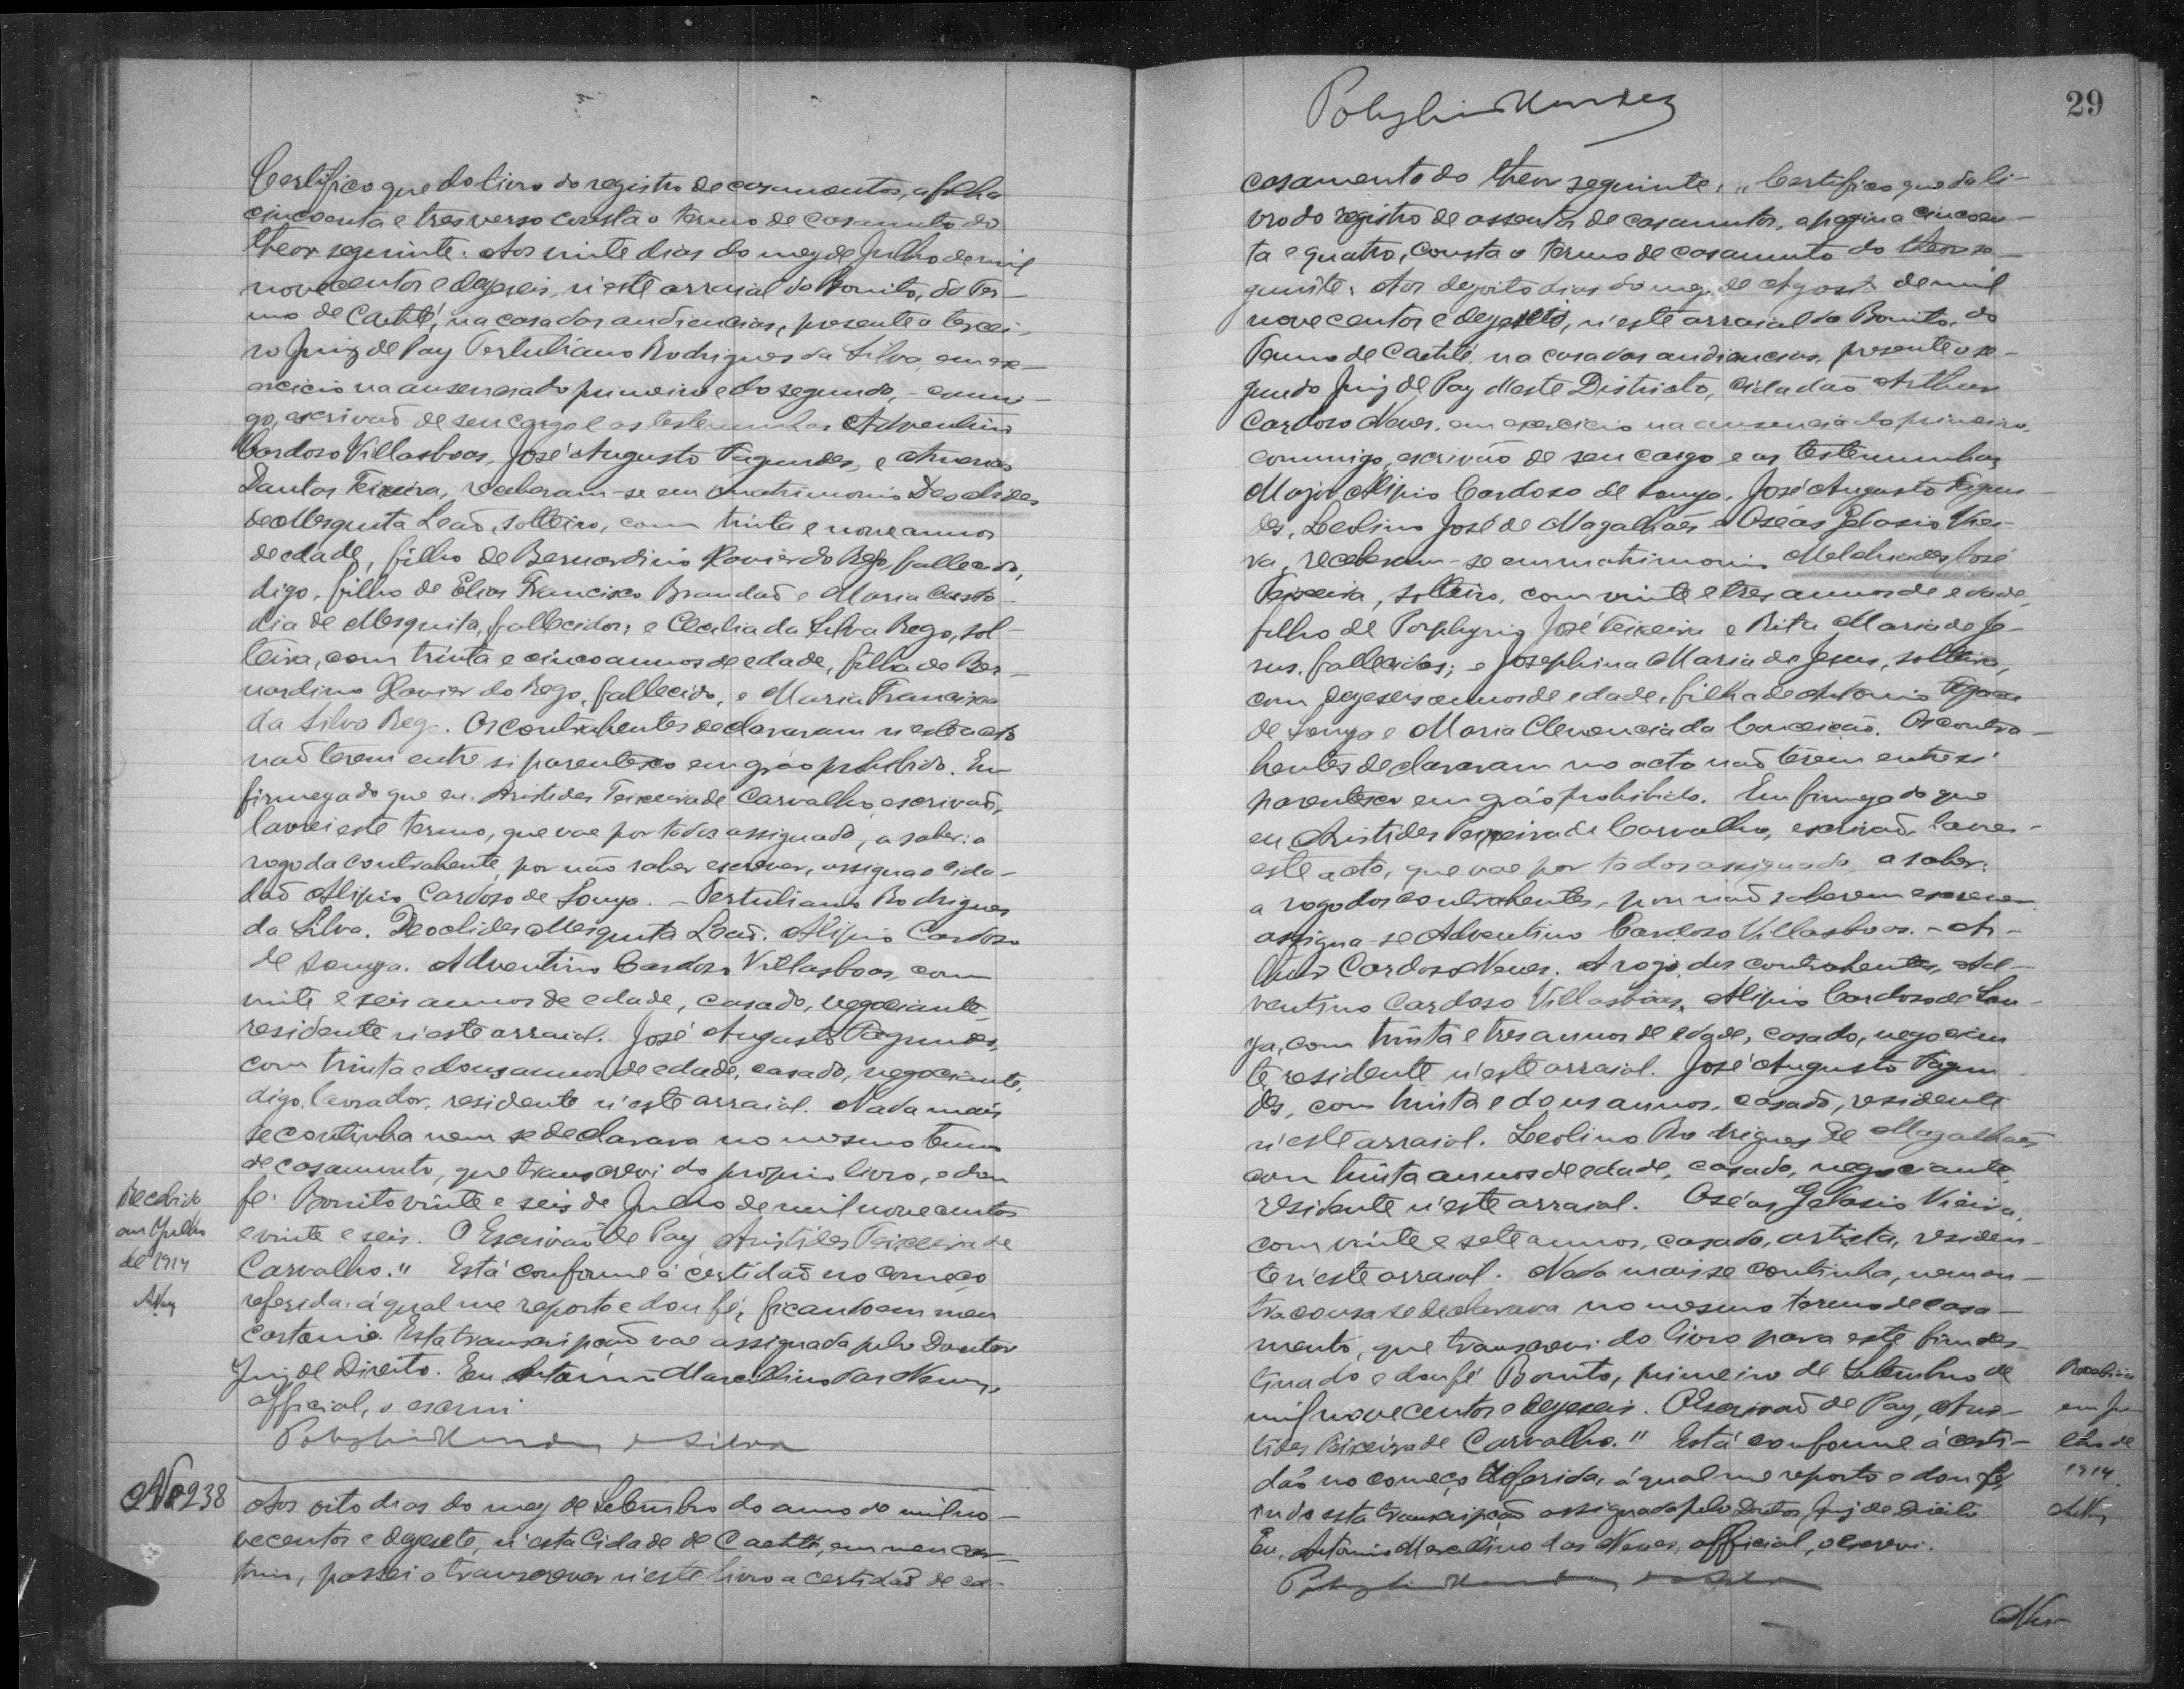 Certifico que do livro do registro de casamentos, a folha
cincoenta e tres verso consta o termo de casamento do
theor seguinte: Aos vinte dias do mez de Julho de mil
novecentos e dezeseis, n'este arraial do Bonito, do Ter-
mo de Caetité, na casa das audiencias, presente o tercei-
ro Juiz de Paz Tertuliano Rodrigues da Silva, em ex-
ercicio na ausencia do primeiro e do segundo, commi-
go, escrivão de seu cargo e as testemunhas Adventino
Cardoso Villasboas, José Augusto Fagundes, e
Dantas Teixeira, receberam-se em matrimonio Deoclides
de Mesquita Leão, solteiro, com trinta e nove annos
de edade, filho de Bernardino Xavier do Rego, fallecido,
digo, filho de Elias Francisco Brandão e Maria Custo-
dia de Mesquita, fallecidos; e Cecilia da Silva Rego, sol-
teira, com trinta e cinco annos de edade, filha de Ber-
nardino Xavier do Rego, fallecido, e Maria Francisca
da Silva Rego. Os contrahentes declararam n'este acto
não terem entre si parentesco em gráo prohibido. Em
firmeza do que eu, Aristides Teixeira de Carvalho, escrivão,
lavrei este termo, que vae por todos assignado, a saber: a
rogo da contrahente, por não saber escrever, assigna o cida-
dão Alipio Cardoso de Souza. - Tertuliano Rodrigues
da Silva. Deoclides Mesquita Leão. Alipio Cardoso
de Souza. Adventino Cardoso Villasboas, com
vinte e seis annos de edade, casado, negociante,
residente n'este arraial. José Augusto Fagundes,
com trinta e dous annos de edade, casado, negociante,
digo, lavrador, residente n'este arraial. Nada mais
se continha nem se declarava no mesmo termo
de casamento, que transcrevi do proprio livro, e dou
fé. Bonito vinte e seis de Julho de mil novecentos
e vinte e seis. O Escrivão de Paz, Aristides Teixeira de
Carvalho." Está conforme á certidão no começo
referida, á qual me reporto e dou fé, ficando em meu
cartorio. Esta transcripção vae assignada pelo Doutor
Juiz de Direito. Eu Antonio Marcellino das Neves,
official, o escrevi
Silva
Recebido
em Julho
de 1917
ANeves
No 238
Aos oito dias do mez de Setembro do anno de mil no-
vecentos e dezesete, n'esta Cidade de Caetité, em meu car-
torio, passei a transcrever n'este livro a certidão de ca-
29
casamento do theor seguinte: "Certifico que do li-
vro do registro de assentos de casamentos, a pagina cincoen-
ta e quatro, consta o termo de casamento do theor se-
guinte: Aos dezoito dias do mez de Agosto de mil
novecentos e dezeseis, n'este arraial do Bonito, do
Termo de Caetité, na casa das audiencias, presente o se-
gundo Juiz de Paz deste Districto, cidadão Arthur
Cardoso Neves, em exercicio na ausencia do primeiro,
commigo, escrivão de seu cargo e as testemunhas
Major Alipio Cardoso de Souza, José Augusto Fagun-
des, Leolino José de Magalhães e Oséas Gelasio Viei-
ra, receberam-se em matrimonio Melchiades José
Teixeira, solteiro, com vinte e tres annos de edade,
filho de Porphyrio José Teixeira e Rita Maria de Je-
sus, fallecidos; e Josephina Maria de Jesus, solteira,
com dezeseis annos de edade, filha de Antonio
de Souza e Maria Clemencia da Conceição. Os contra-
hentes declararam no acto não terem entre si
parentesco em gráo prohibido. Em firmeza do que
eu Aristides Teixeira de Carvalho, escrivão, lavrei
este acto, que vae por todos assignado, a saber:
a rogo dos contrahentes, por não saberem escrever
assigna-se Adventino Cardoso Villasboas. - Ar-
thur Cardoso Neves. A rogo dos contrahentes, Ad-
ventino Cardoso Villasbôas. Alipio Cardoso de Sou-
za, com trinta e tres annos de edade, casado, negocian
te, residente n'este arraial. José Augusto Fagun
des, com trinta e dous annos, casado, residente
n'este arraial. Leolino Rodrigues de Magalhães
com trinta annos de edade, casado, negociante,
residente n'este arraial. Oséas Gelasio Vieira,
com vinte e sete annos, casado, artista, residen-
te n'este arraial. Nada mais se continha, nem ou-
tra cousa se declarava no mesmo termo de casa-
mento, que transcrevi do livro para este fim des-
tinado e dou fé. Bonito, primeiro de Setembro de
mil novecentos e dezeseis. O Escrivão de Paz, Aris-
tides Teixeira de Carvalho." Está conforme á certi-
dão no começo referida, á qual me reporto e dou fé,
indo esta transcripção assignada pelo Doutor Juiz de Direito
Eu, Antonio Marcellino das Neves, official, o escrevi.
Recebido
em Ju
lho de
1917.
ANeves